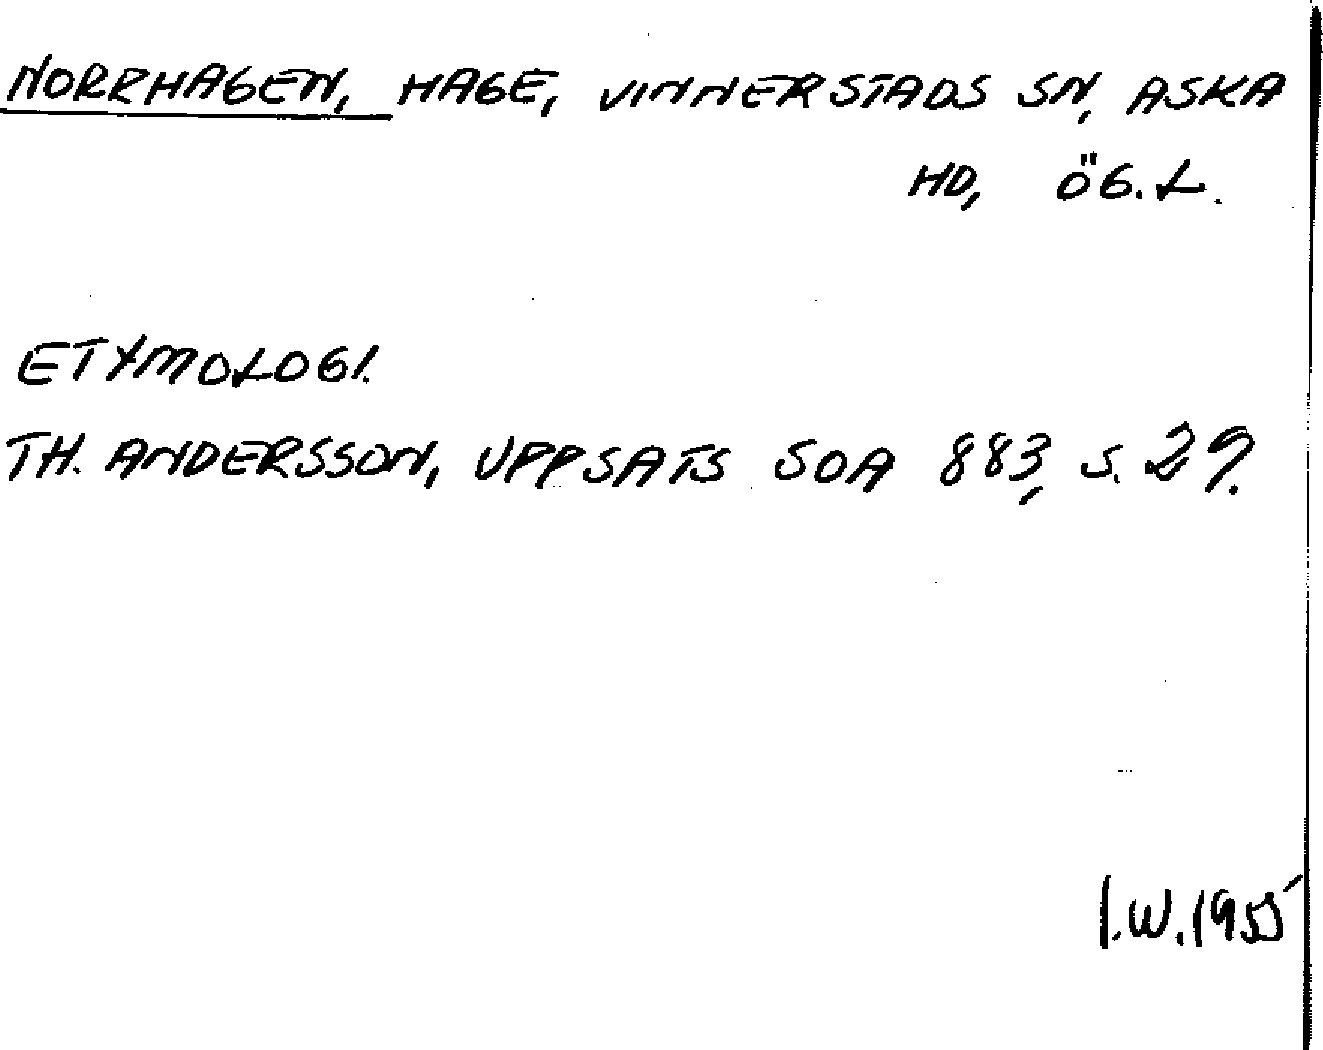 NORRHAGEN, HAGE, VINNERSTADS SN, ASKA
HD, ÖG.L.
ETYMOLOGI.
TH. ANDERSSON, UPPSATS SOA 883, S. 29.
I.W. 1955